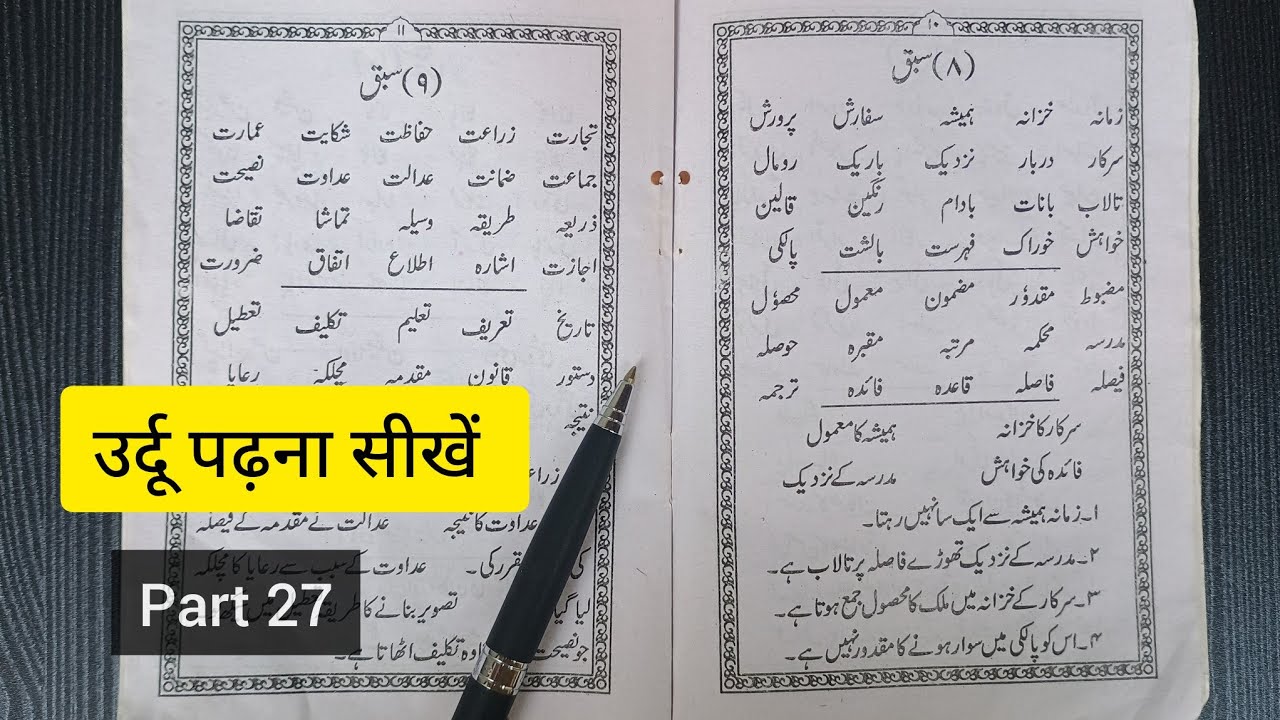 ۱۰
(۸) سبق
زمانہ خزانہ ہمیشہ سفارش پرورش
سرکار دربار نزدیک باریک رومال
تالاب بانات بادام رنگین قالین
خواہش خوراک فہرست بالشت پالکی
مضبوط مقدور مضمون معمول محصول
مدرسہ محکمہ مرتبہ مقبرہ حوصلہ
فیصلہ فاصلہ قاعدہ فائدہ ترجمہ
سرکار کا خزانہ ہمیشہ کا معمول
فائدہ کی خواہش مدرسہ کے نزدیک
۱۔ زمانہ ہمیشہ سے ایک سا نہیں رہتا۔
۲۔ مدرسہ کے نزدیک تھوڑے فاصلہ پر تالاب ہے۔
۳۔ سرکار کے خزانہ میں ملک کا محصول جمع ہوتا ہے۔
۴۔ اس کو پالکی میں سوار ہونے کا مقدور نہیں ہے۔
۱۱
(۹) سبق
تجارت زراعت حفاظت شکایت عمارت
جماعت ضمانت عدالت عداوت نصیحت
ذریعہ طریقہ وسیلہ تماشا تقاضا
اجازت اشارہ اطلاع اتفاق ضرورت
تاریخ تعریف تعلیم تکلیف تعطیل
دستور قانون مقدمہ مچلکہ رعایا
نتیجہ
عداوت کا نتیجہ عدالت نے مقدمہ کے فیصلہ
کی مقرر کی۔ عداوت کے سبب سے رعایا کا مچلکہ
لیا گیا تصویر بنانے کا طریقہ
جو نصیحت وہ تکلیف اٹھاتا ہے۔
उर्दू पढ़ना सीखें
Part 27